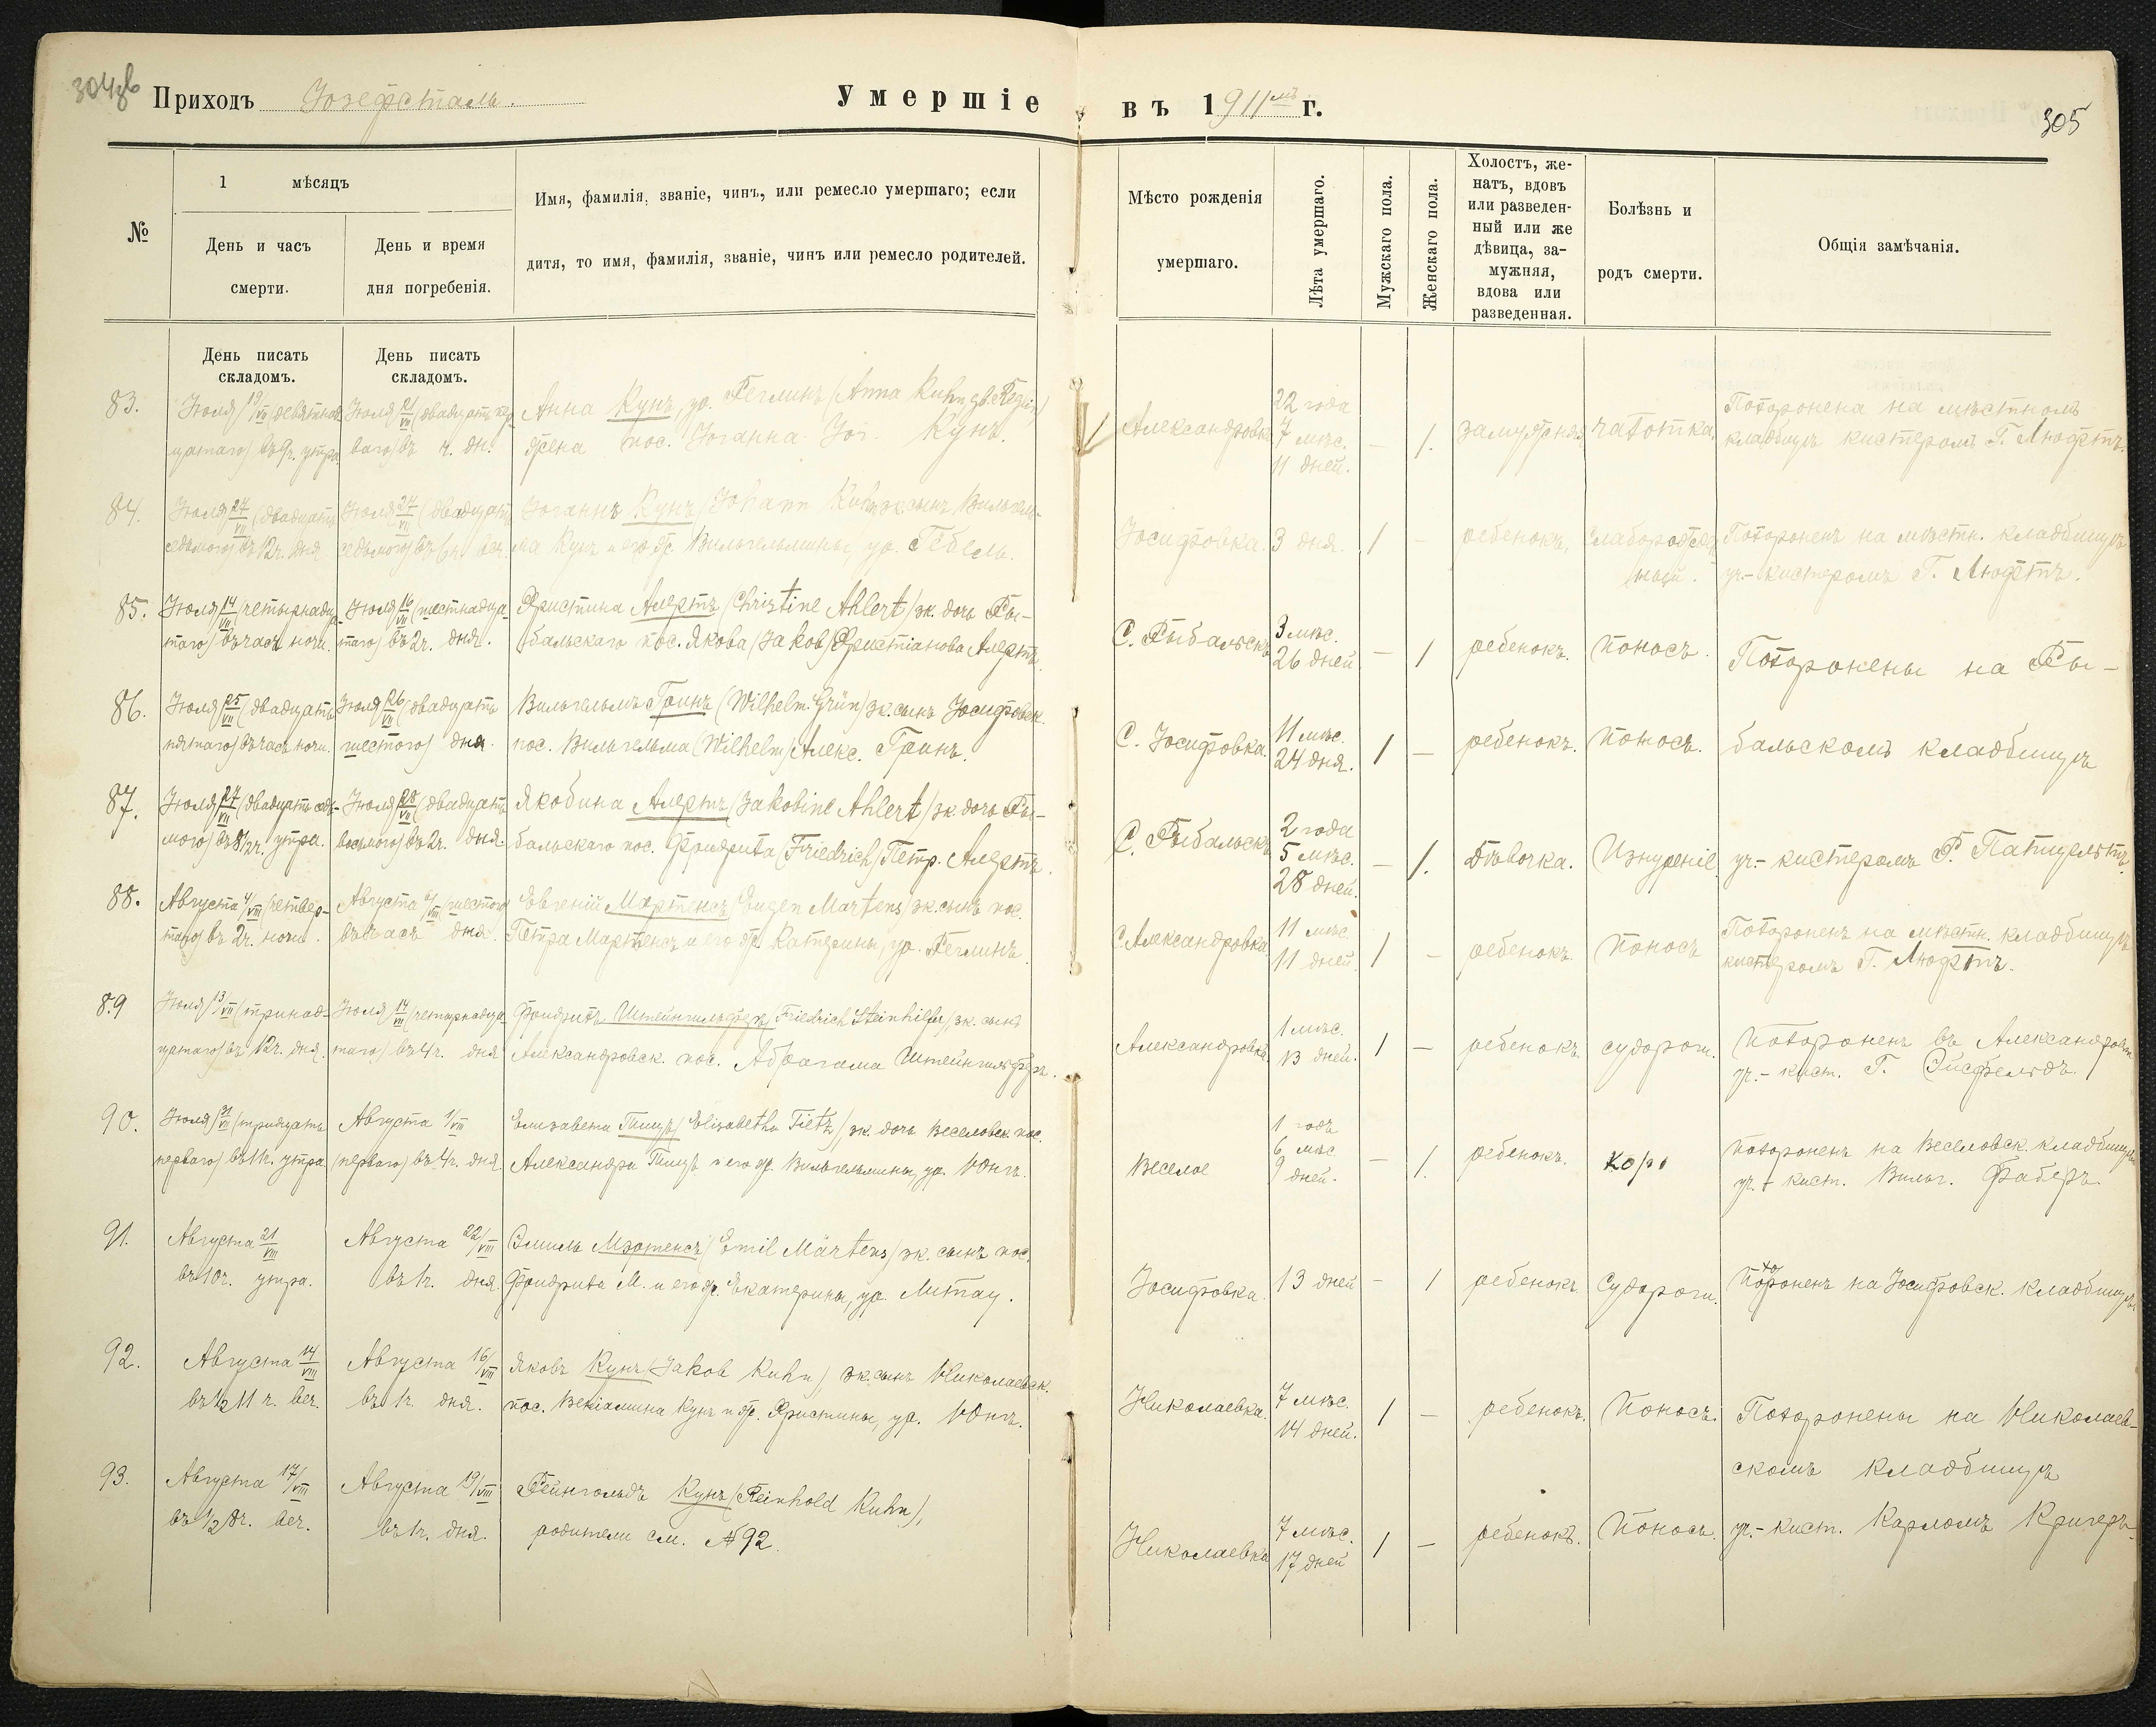 304об
Приходъ Іозефсталь.
Умершіе въ 1911мъ г.
305
№
1 мѣсяцъ
День и часъ смерти.
День и время дня погребенія.
Имя, фамилія, званіе, чинъ, или ремесло умершаго; если дитя, то имя, фамилія, званіе, чинъ или ремесло родителей.
Мѣсто рожденія умершаго.
Лѣта умершаго.
Мужскаго пола.
Женскаго пола.
Холостъ, женатъ, вдовъ или разведенный или же дѣвица, замужняя, вдова или разведенная.
Болѣзнь и родъ смерти.
Общія замѣчанія.
День писать складомъ.
День писать складомъ.
83.
Іюля 19/VII (девятнадцатаго) въ 9ч. утра.
Іюля 21/VII (двадцать перваго) въ ч. дн.
Анна Кунъ, ур. Реглинъ (Anna Kuhn gb. Reglin)
жена пос. Іоганна Іог. Кунъ.
Александровка
22 года
7 мѣс.
11 дней.
— 1.
замужняя
чахотка.
Похоронена на мѣстномъ
кладбищѣ кистеромъ Г. Люфтъ.
84.
Іюля 27/VII (двадцать седьмого) въ 12ч. дня.
Іюля 27/VII (двадцать седьмого) въ 6ч. веч.
Іоганнъ Кунъ (Johann Kuhn) зк. сынъ Вильгельма Кунъ и его ж. Вильгельмины, ур. Гебель.
Іосифовка.
3 дня.
1 —
ребенокъ,
слаборожденный.
Похороненъ на мѣстн. кладбищѣ
уч.-кистеромъ Г. Люфтъ.
85.
Іюля 14/VII (четырнадцатаго) въ часъ ночи.
Іюля 16/VII (шестнадцатаго) въ 2ч. дня.
Христина Алертъ (Christine Ahlert) зк. дочь Рыбальскаго пос. Якова (Jakob) Христіанова Алертъ.
С. Рыбальскъ
3 мѣс.
26 дней
— 1
ребенокъ.
поносъ.
Похоронены на Ры-
86.
Іюля 25/VII (двадцать пятаго) въ часъ ночи.
Іюля 26/VII (двадцать шестого) дня.
Вильгельмъ Гринъ (Wilhelm Grün) зк. сынъ Іосифовск.
пос. Вильгельма (Wilhelm) Алекс. Гринъ.
С. Іосифовка.
11 мѣс.
24 дня.
1 —
ребенокъ.
поносъ.
бальскомъ кладбищѣ
87.
Іюля 27/VII (двадцать седьмого) въ 8½ч. утра.
Іюля 28/VII (двадцать восьмого) въ 2ч. дня.
Якобина Алертъ (Jakobine Ahlert) зк. дочь Рыбальскаго пос. Фридриха (Friedrich) Петр. Алертъ.
С. Рыбальскъ
2 года
5 мѣс.
28 дней.
— 1.
Дѣвочка.
Изнуреніе.
уч.-кистеромъ Ф. Патцельтъ.
88.
Августа 4/VIII (четвертаго) въ 2ч. ночи.
Августа 6/VIII (шестого) въ часъ дня.
Евгеній Мартенсъ (Eugen Martens) зк. сынъ пос.
Петра Мартенсъ и его ж. Катерины, ур. Реглинъ.
С. Александровка.
11 мѣс.
11 дней.
1 —
ребенокъ.
поносъ
Похороненъ на мѣстн. кладбищѣ
кистеромъ Г. Люфтъ.
89
Іюля 13/VII (тринадцатаго) въ 12ч. дня.
Іюля 14/VII (четырнадцатаго) въ 4ч. дня
Фридрихъ Штейнгильферъ (Friedrich Steinhilfer) зк. сынъ
Александровск. пос. Абрагама Штейнгильферъ.
Александровка.
1 мѣс.
13 дней.
1 —
ребенокъ.
судороги.
Похороненъ въ Александровкѣ
уч.-кист. Г. Эйсфельдъ.
90.
Іюля 31/VII (тридцать перваго) въ 1ч. утра
Августа 1/VIII (перваго) въ 4ч. дня
Елизавета Тицъ (Elisabetha Tietz) зк. дочь Веселовск. пос.
Александра Тицъ и его ж. Вильгельмины, ур. Юнгъ.
Веселое
1 годъ
6 мѣс.
9 дней.
— 1.
ребенокъ.
корь
похороненъ на Веселовск. кладбищѣ
уч.-кист. Вильг. Фаберъ.
91.
Августа 21/VIII
въ 10ч. утра.
Августа 22/VIII
въ 1ч. дня
Эмиль Мэртенсъ (Emil Märtens) зк. сынъ пос.
Фридриха М. и его ж. Екатерины, ур. Литау.
Іосифовка.
13 дней
— 1
ребенокъ
Судороги.
Похороненъ на Іосифовск. кладбищѣ.
92.
Августа 14/VIII
въ ½11 ч. веч.
Августа 16/VIII
въ 1ч. дня.
Яковъ Кунъ (Jakob Kuhn) зк. сынъ Николаевск.
пос. Веніамина Кунъ и ж. Христины, ур. Юнгъ.
Николаевка.
7 мѣс.
14 дней.
1 —
ребенокъ.
Поносъ.
Похоронены на Николаев-
скомъ кладбищѣ
93.
Августа 17/VIII
въ ½8ч. веч.
Августа 19/VIII
въ 1ч. дня.
Рейнгольдъ Кунъ (Reinhold Kuhn),
родители см. №92.
Николаевка
7 мѣс.
17 дней
1 —
ребенокъ.
Поносъ.
уч.-кист. Карломъ Кригеръ.